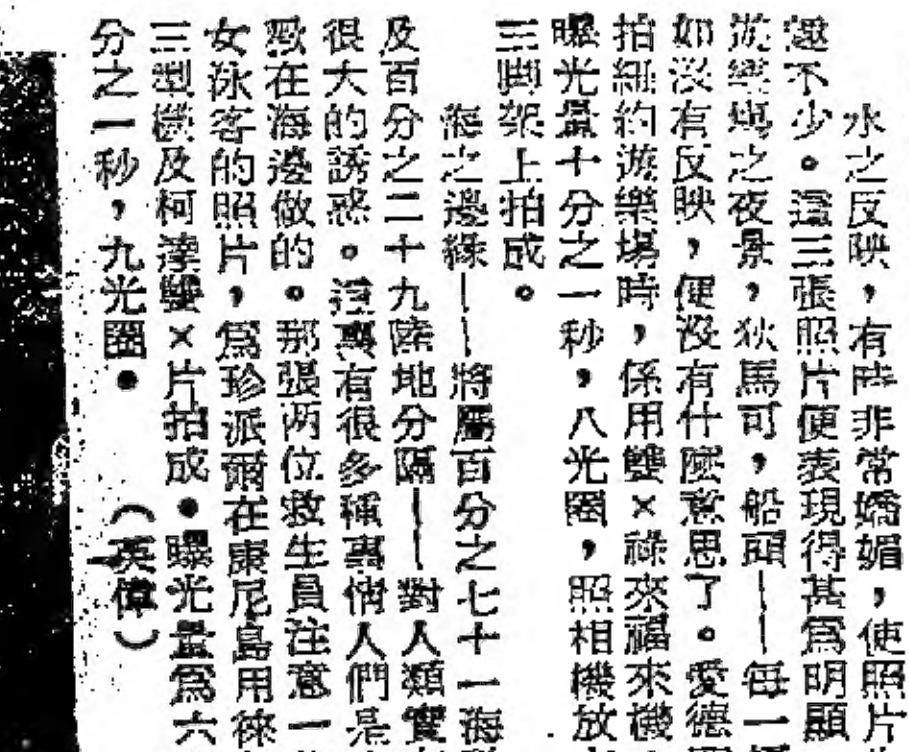 水之反映，有時非常嬌媚，使照片
趣不少。這三張照片便表現得甚爲明顯
遊樂場之夜景，狄馬可，船頭——每一
如沒有反映，便沒有什麼意思了。愛德
拍紐約遊樂場時，係用雙×祿來福來機
曝光量十分之一秒，八光圈，照相機放
三脚架上拍成。
海之邊緣——將屬百分之七十一海
及百分之二十九陸地分隔——對人類實
很大的誘惑。這裏有很多種事情人們是
歡在海邊做的。那張两位救生員注意一
女泳客的照片，爲珍派爾在康尼島用徠
三型機及柯達雙×片拍成。曝光量爲六
分之一秒，九光圈。（英偉）